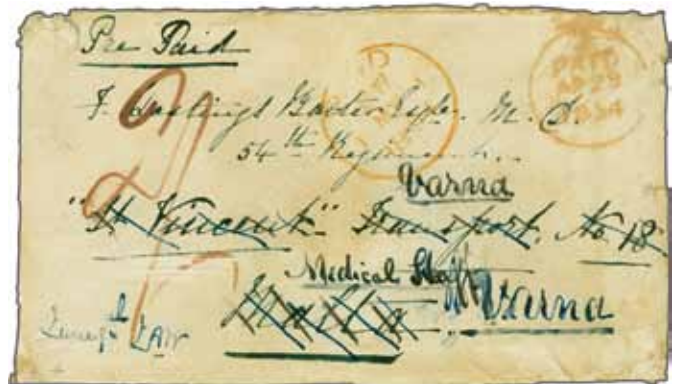 Pre Paid
PAID
AP 29
1854
F. Hastings Baxter Esqre. M.D.
54th Regiment.
Varna
"St Vincent" Transport. No 18
Medical Staff
Malta
Varna